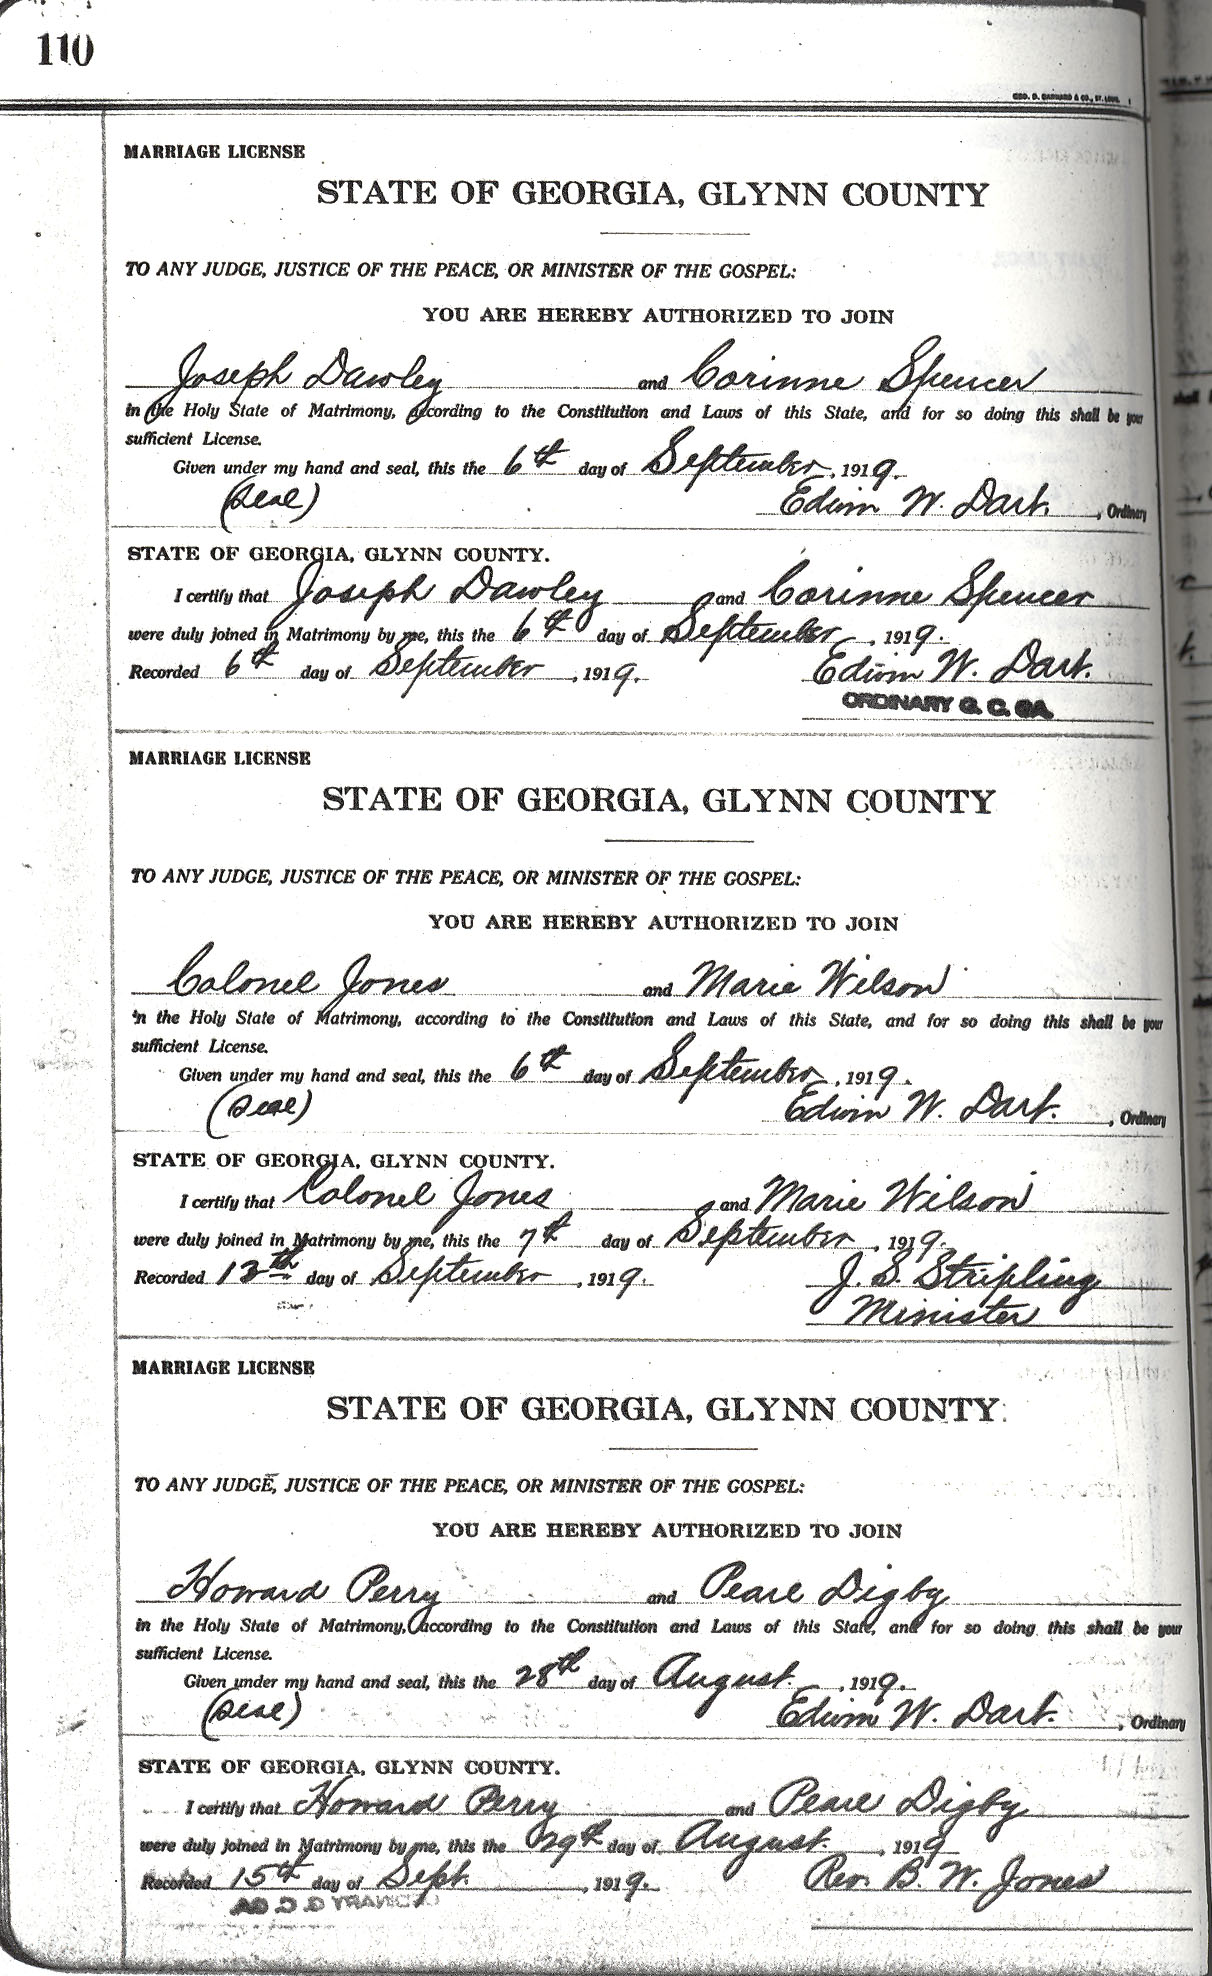 110
GEO. D. BARNARD & CO., ST. LOUIS
MARRIAGE LICENSE
STATE OF GEORGIA, GLYNN COUNTY
TO ANY JUDGE, JUSTICE OF THE PEACE, OR MINISTER OF THE GOSPEL:
YOU ARE HEREBY AUTHORIZED TO JOIN
Joseph Dawley and Corinne Spencer
in the Holy State of Matrimony, according to the Constitution and Laws of this State, and for so doing this shall be your
sufficient License.
Given under my hand and seal, this the 6th day of September, 1919.
(Seal) Edwin W. Dart. , Ordinary
STATE OF GEORGIA, GLYNN COUNTY.
I certify that Joseph Dawley and Corinne Spencer
were duly joined in Matrimony by me, this the 6th day of September, 1919.
Recorded 6th day of September, 1919. Edwin W. Dart.
ORDINARY G. C. GA.
MARRIAGE LICENSE
STATE OF GEORGIA, GLYNN COUNTY
TO ANY JUDGE, JUSTICE OF THE PEACE, OR MINISTER OF THE GOSPEL:
YOU ARE HEREBY AUTHORIZED TO JOIN
Colonel Jones and Marie Wilson
in the Holy State of Matrimony, according to the Constitution and Laws of this State, and for so doing this shall be your
sufficient License.
Given under my hand and seal, this the 6th day of September, 1919.
(Seal) Edwin W. Dart. , Ordinary
STATE OF GEORGIA, GLYNN COUNTY.
I certify that Colonel Jones and Marie Wilson
were duly joined in Matrimony by me, this the 7th day of September, 1919.
Recorded day of September, 1919. J. S. Stripling
Minister
MARRIAGE LICENSE
STATE OF GEORGIA, GLYNN COUNTY.
TO ANY JUDGE, JUSTICE OF THE PEACE, OR MINISTER OF THE GOSPEL:
YOU ARE HEREBY AUTHORIZED TO JOIN
Howard Perry and Pearl Digby
in the Holy State of Matrimony, according to the Constitution and Laws of this State, and for so doing this shall be your
sufficient License.
Given under my hand and seal, this the 28th day of August. , 1919.
(Seal) Edwin W. Dart. , Ordinary
STATE OF GEORGIA, GLYNN COUNTY.
I certify that Howard Perry and Pearl Digby
were duly joined in Matrimony by me, this the 29th day of August. , 1919
Recorded 15th day of Sept. , 1919. Rev. B. W. Jones